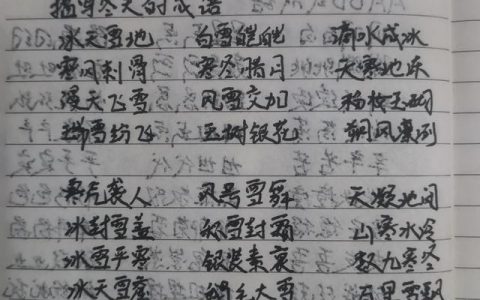 描写冬天的成语
冰天雪地 白雪皑皑 滴水成冰
寒风刺骨 寒冬腊月 天寒地冻
漫天飞雪 风雪交加
瑞雪纷飞 玉树银花 朔风凛冽
寒气袭人 风号雪舞 天凝地闭
冰封雪盖 欺雪封霜 山寒水冷
冰雪严寒 银装素裹 数九寒冬
冰天雪窖 鹅毛大雪